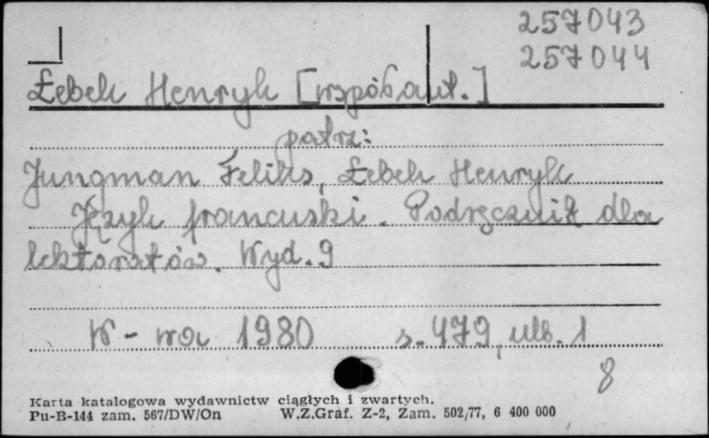 257043
257044
Łebek Henryk [współaut.]
patrz:
Jungman Feliks, Łebek Henryk
Język francuski. Podręcznik dla
lektoratów. Wyd. 9
W-wa 1980 s. 479, ulb. 1
8
Karta katalogowa wydawnictw ciągłych i zwartych.
Pu-B-144 zam. 567/DW/On W.Z.Graf. Z-2, Zam. 502/77, 6 400 000